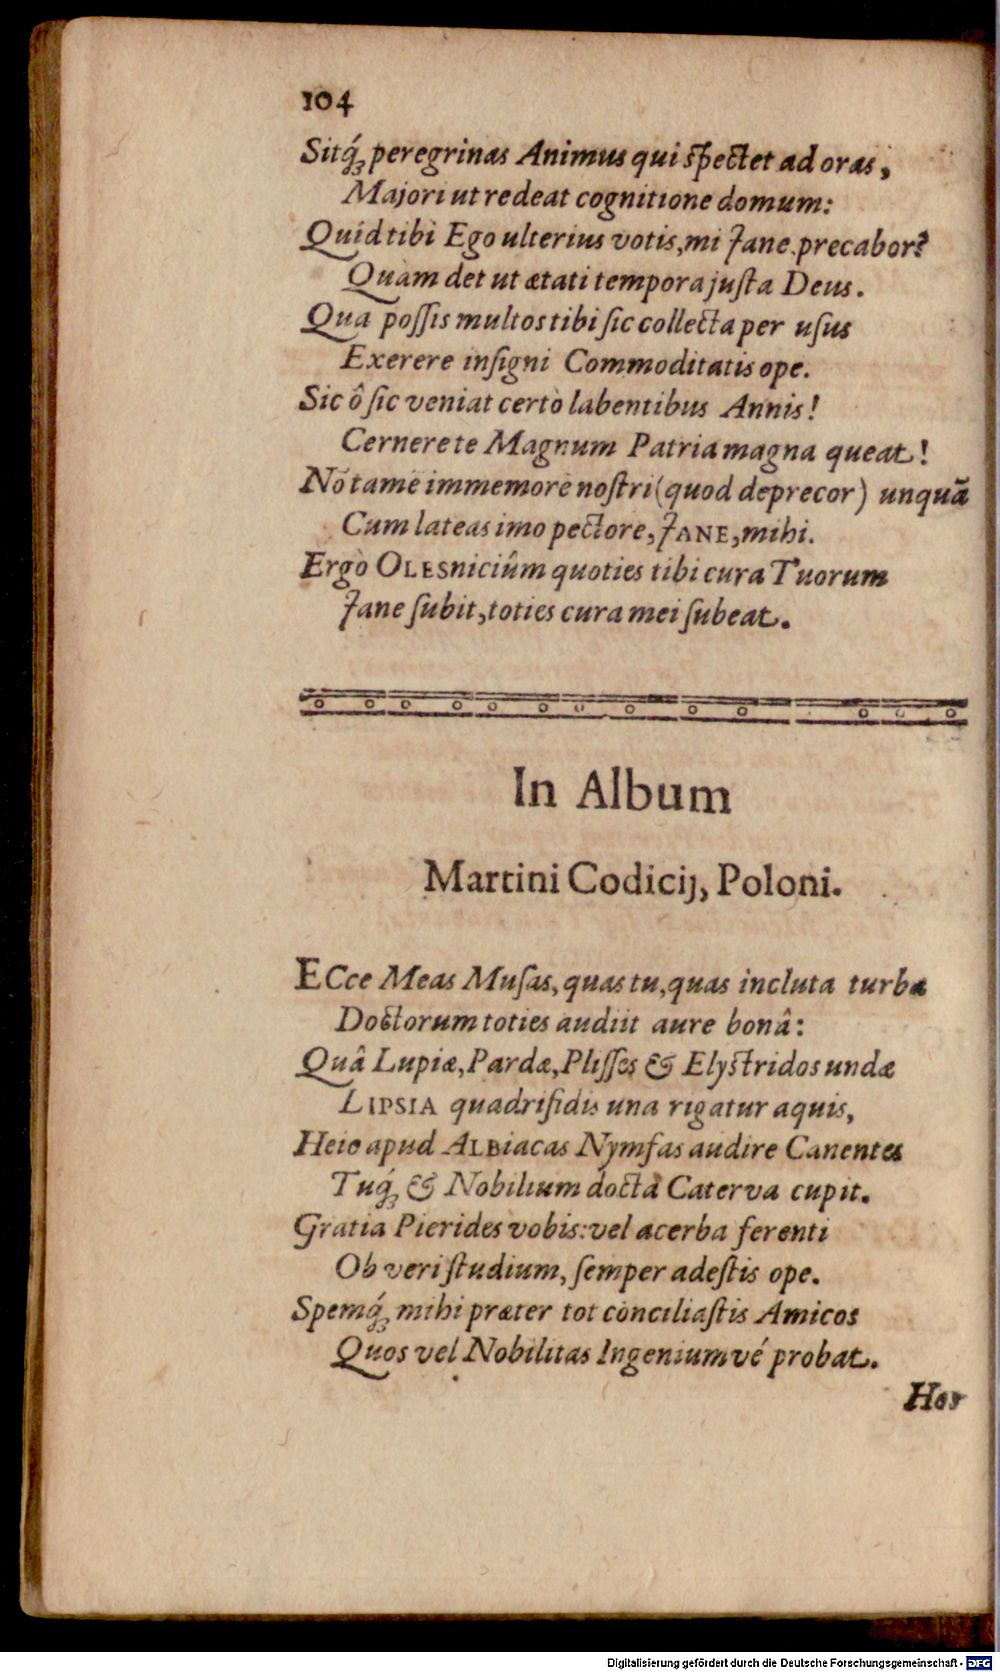 104
Sitq́; peregrinas Animus qui spectet ad oras,
Majori ut redeat cognitione domum:
Quid tibi Ego ulterius votis, mi Jane, precabor?
Quàm det ut ætati tempora juſta Deus.
Qua poſſis multos tibi ſic collecta per uſus
Exerere inſigni Commoditatis ope.
Sic ô ſic veniat certò labentibus Annis!
Cernere te Magnum Patria magna queat!
Nõ tamẽ immemorẽ noſtri (quod deprecor) unquã
Cum lateas imo pectore, JANE, mihi.
Ergò OLESniciûm quoties tibi cura Tuorum
Jane ſubit, toties cura mei ſubeat.
In Album
Martini Codicij, Poloni.
ECce Meas Muſas, quas tu, quas incluta turba
Doctorum toties audiit aure bonâ:
Quâ Lupiæ, Pardæ, Pliſſes & Elystridos undæ
LIPSIA quadrifidis una rigatur aquis,
Heic apud ALBiacas Nymfas audire Canentes
Tuq́; & Nobilium docta Caterva cupit.
Gratia Pierides vobis: vel acerba ferenti
Ob veri ſtudium, ſemper adeſtis ope.
Spemq́; mihi præter tot conciliaſtis Amicos
Quos vel Nobilitas Ingeniumvé probat.
Hos
Digitalisierung gefördert durch die Deutsche Forschungsgemeinschaft - DFG